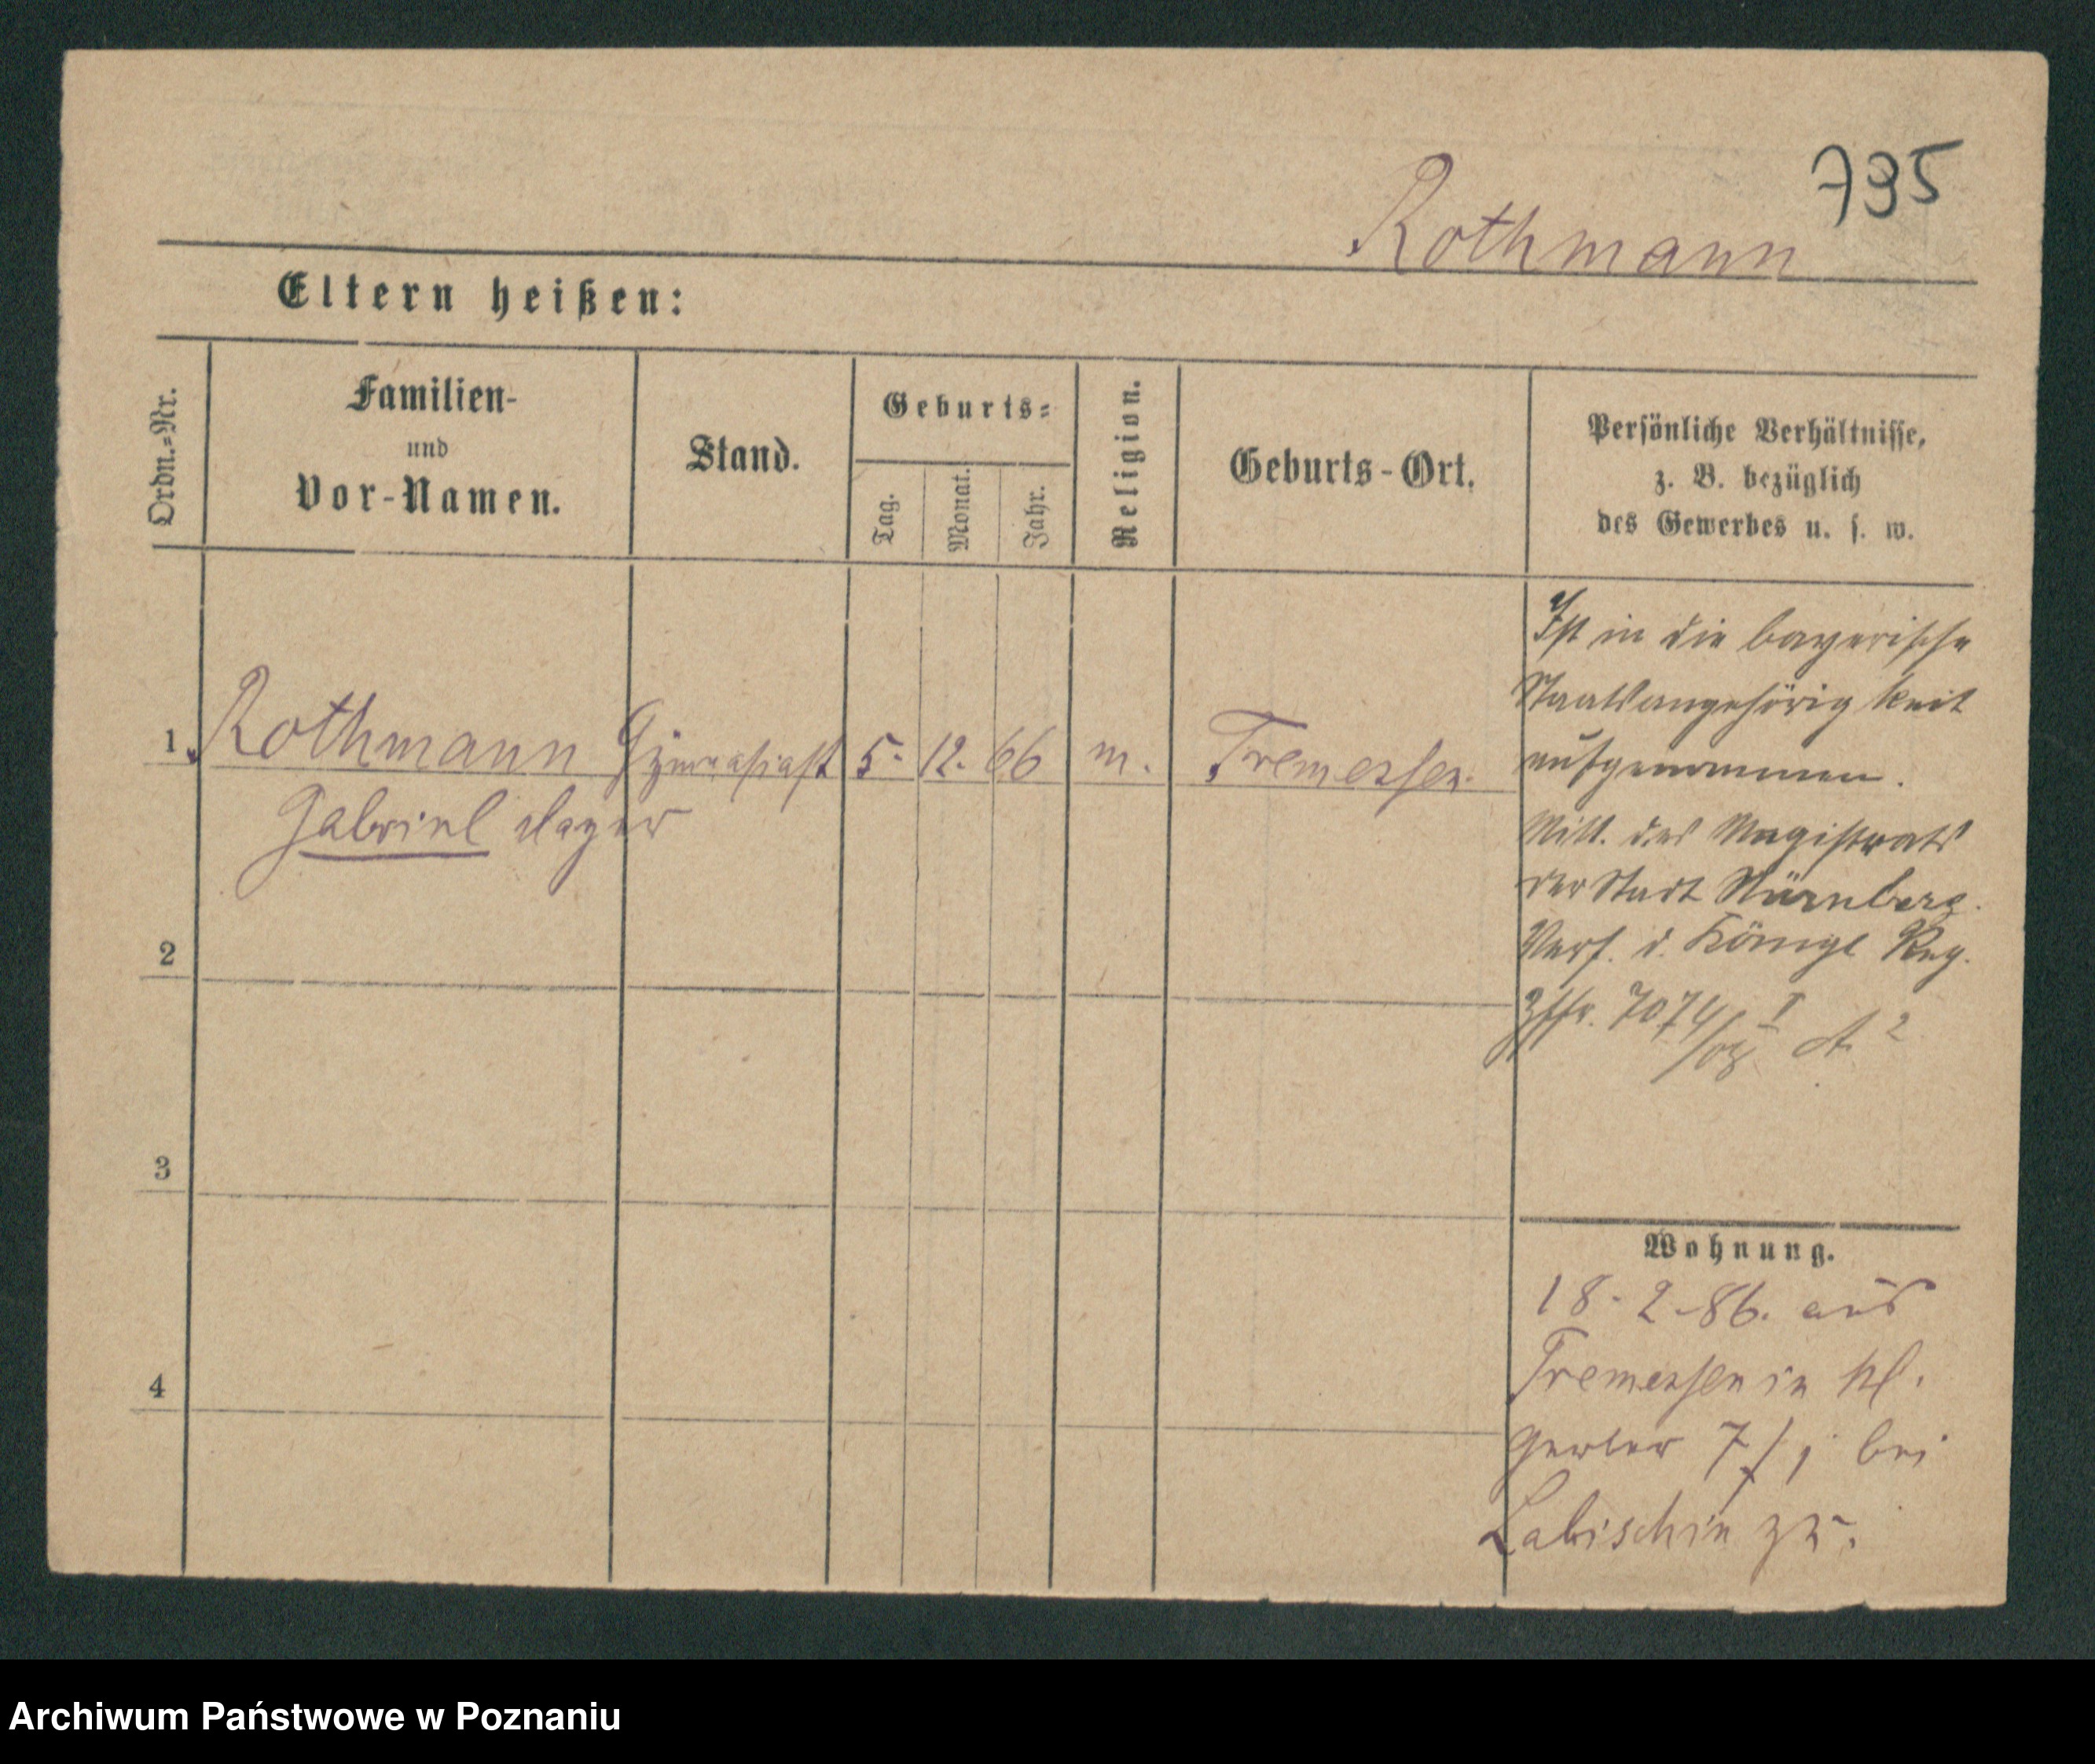 795
Rothmann
Eltern heißen:
Ordn.=Nr.
Familien-
und
Vor-Namen.
Stand.
Geburts=
Tag.
Monat.
Jahr.
Religion.
Geburts-Ort.
Persönliche Verhältnisse,
z. B. bezüglich
des Gewerbes u. s. w.
1. Rothmann Gymnasiast 5. 12. 66 m. Tremessen.
Gabriel Mayer
Ist in die bayerische
Staatsangehörigkeit
aufgenommen.
Mitt. des Magistrats
der Stadt Nürnberg.
Verf. d. Königl Reg.
7074/08 I A 2
2
3
4
Wohnung.
18.2.86. aus
Tremessen in kl.
Gerber 7/ bei
Labischin zu.
Archiwum Państwowe w Poznaniu